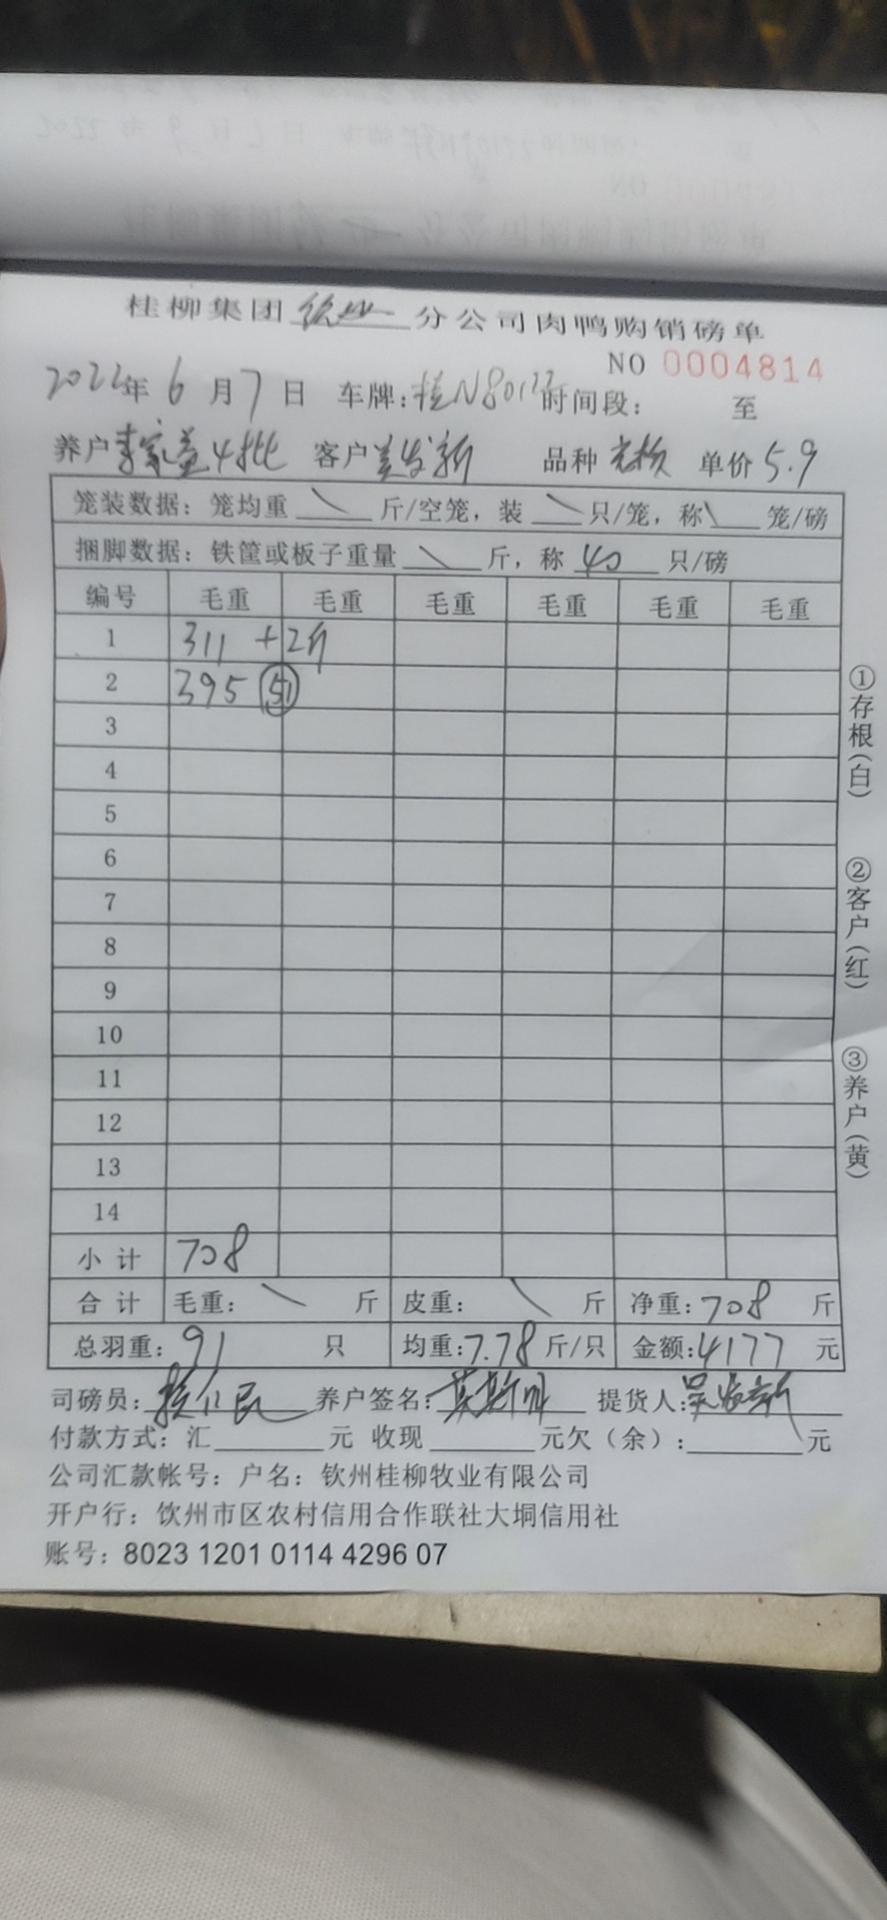 桂柳集团 分公司肉鸭购销磅单
NO 0004814
2022年 6 月 7 日 车牌：桂N80122 时间段： 至
养户 李家益4批 客户 吴发新 品种 单价 5.9
笼装数据：笼均重 斤/空笼，装 只/笼，称 笼/磅
捆脚数据：铁筐或板子重量 斤，称 40 只/磅
编号 毛重 毛重 毛重 毛重 毛重 毛重
1 311 +2斤
2 395 51
3
4
5
6
7
8
9
10
11
12
13
14
小计 708
合计 毛重： 斤 皮重： 斤 净重：708 斤
总羽重：91 只 均重：7.78 斤/只 金额：4177 元
司磅员： 养户签名： 提货人：吴发新
付款方式：汇 元 收现 元欠（余）： 元
公司汇款帐号：户名：钦州桂柳牧业有限公司
开户行：饮州市区农村信用合作联社大垌信用社
账号：8023 1201 0114 4296 07
①存根（白）
②客户（红）
③养户（黄）